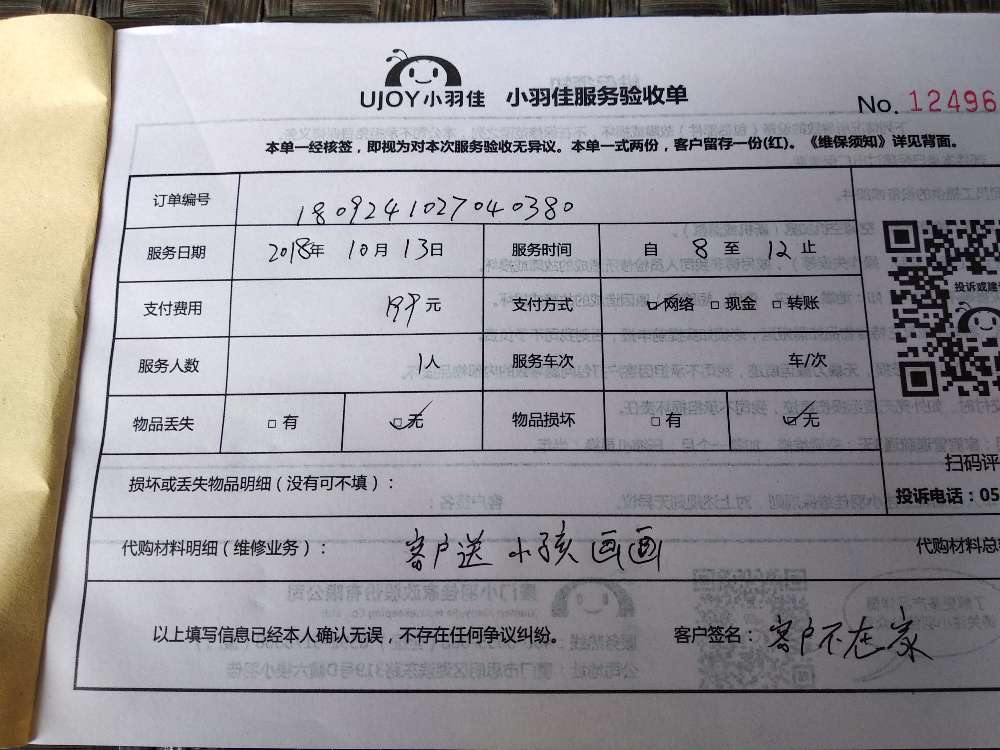 UJOY小羽佳 小羽佳服务验收单
No. 12496
本单一经核签，即视为对本次服务验收无异议。本单一式两份，客户留存一份(红)。《维保须知》详见背面。
订单编号 1809241027040380
服务日期 2018年 10月 13日 服务时间 自 8 至 12 止
支付费用 元 支付方式 ☑网络 □现金 □转账
服务人数 1人 服务车次 车/次
物品丢失 □有 ☑无 物品损坏 □有 ☑无
损坏或丢失物品明细（没有可不填）：
代购材料明细（维修业务）： 客户送小孩画画 代购材料总
以上填写信息已经本人确认无误，不存在任何争议纠纷。 客户签名：客户不在家
投诉或建
扫码评
投诉电话：05